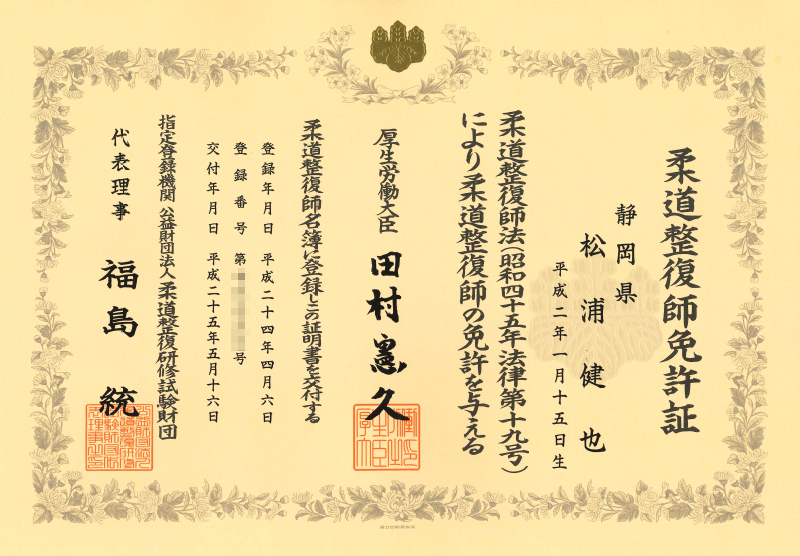 柔道整復師免許証
静岡県
松浦健也
平成二年一月十五日生
柔道整復師法(昭和四十五年法律第十九号)
により柔道整復師の免許を与える
厚生労働大臣 田村憲久
柔道整復師名簿に登録しこの証明書を交付する
登録年月日 平成二十四年四月六日
登録番号 第 号
交付年月日 平成二十五年五月十六日
指定登録機関 公益財団法人 柔道整復研修試験財団
代表理事 福島統